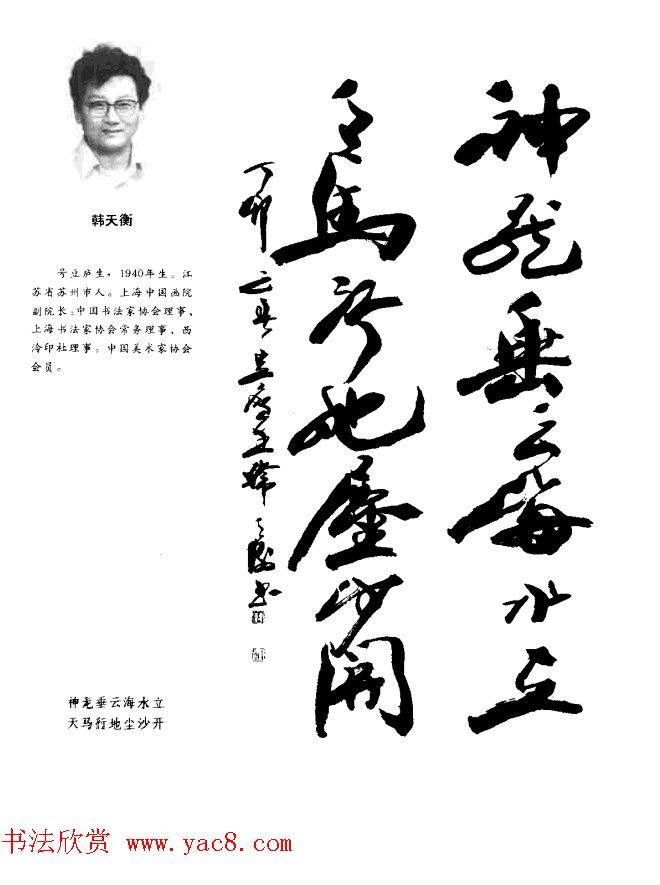 神龙垂云海水立
天馬行地塵沙開
丁卯之春豆廬天衡书
韩天衡
号豆庐生，1940年生。江
苏省苏州市人。上海中国画院
副院长；中国书法家协会理事、
上海书法家协会常务理事、西
泠印社理事。中国美术家协会
会员。
神龙垂云海水立
天马行地尘沙开
书法欣赏 www.yac8.com